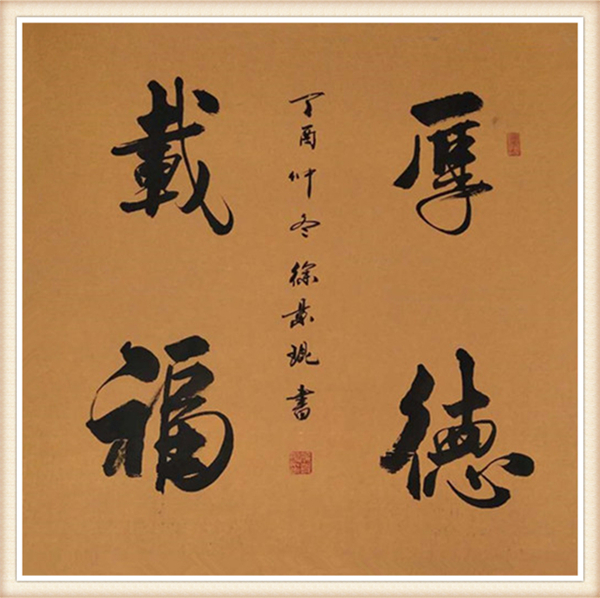 厚德
載福
丁酉仲冬徐景琨書